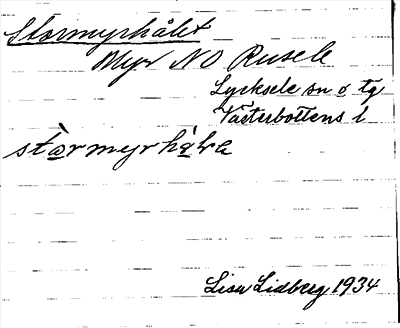 Stormyrhålet
Myr NO Rusele
Lycksele sn o tg
Västerbottens l
stòrmyrhò̀lə
Lisa Lidberg 1934